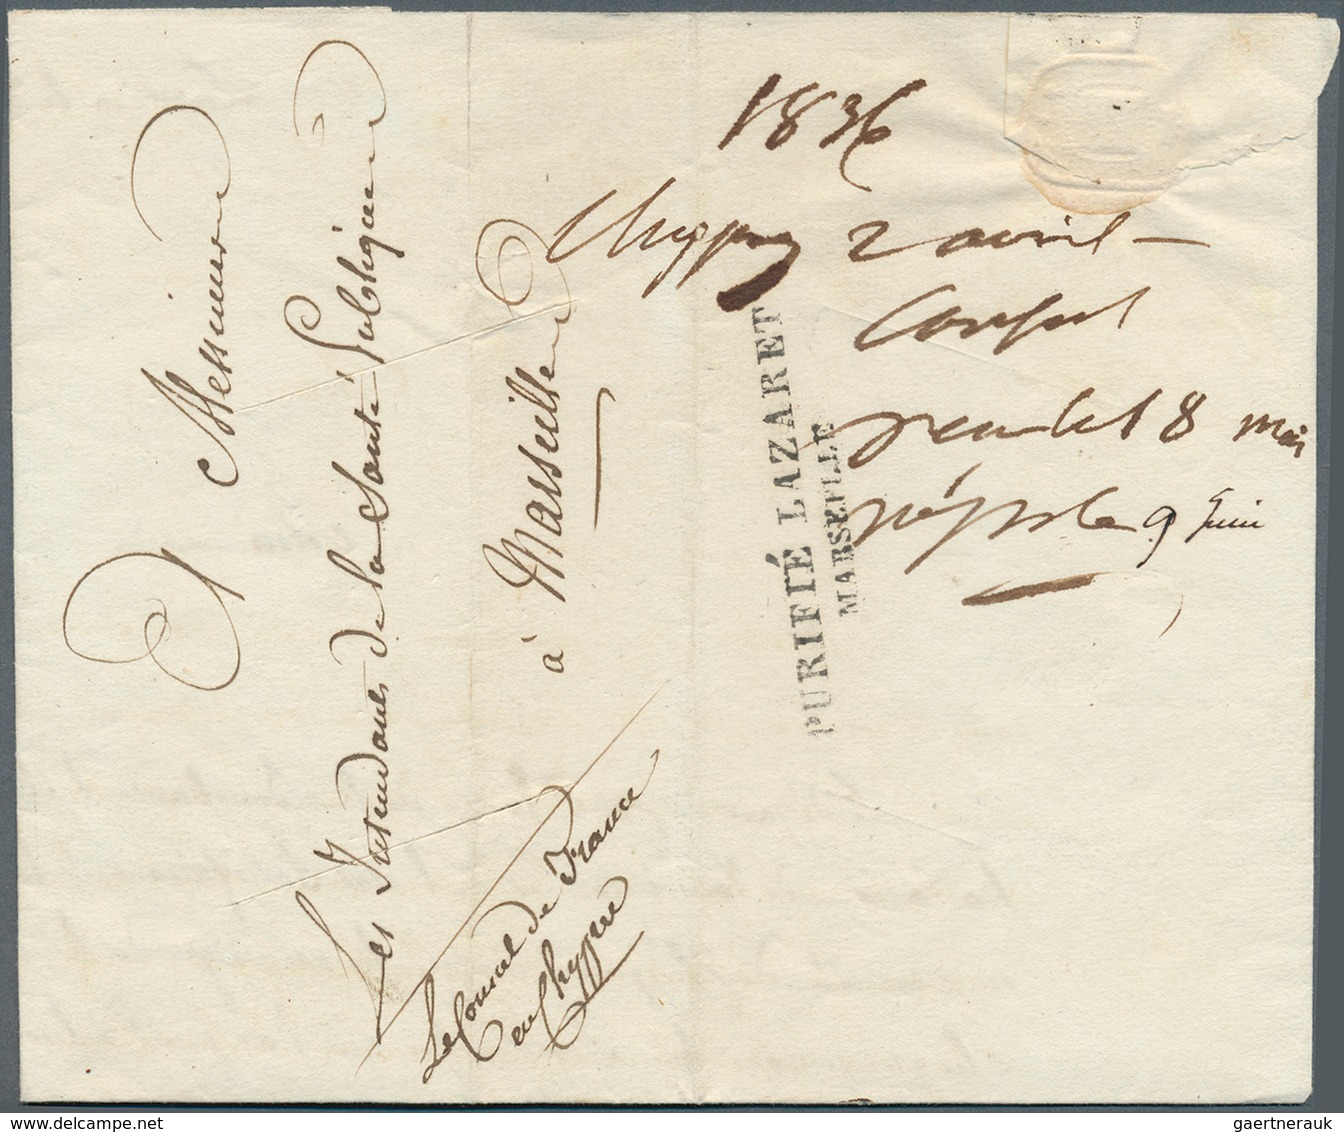 Messieurs
Les Intendants de la Santé Publique
à Marseille
Le Consul de France
en Chypre
1836
Chypre 2 avril
Consul
PURIFIÉ LAZARET
MARSEILLE
18 mai
9 juin
gaertnerauk